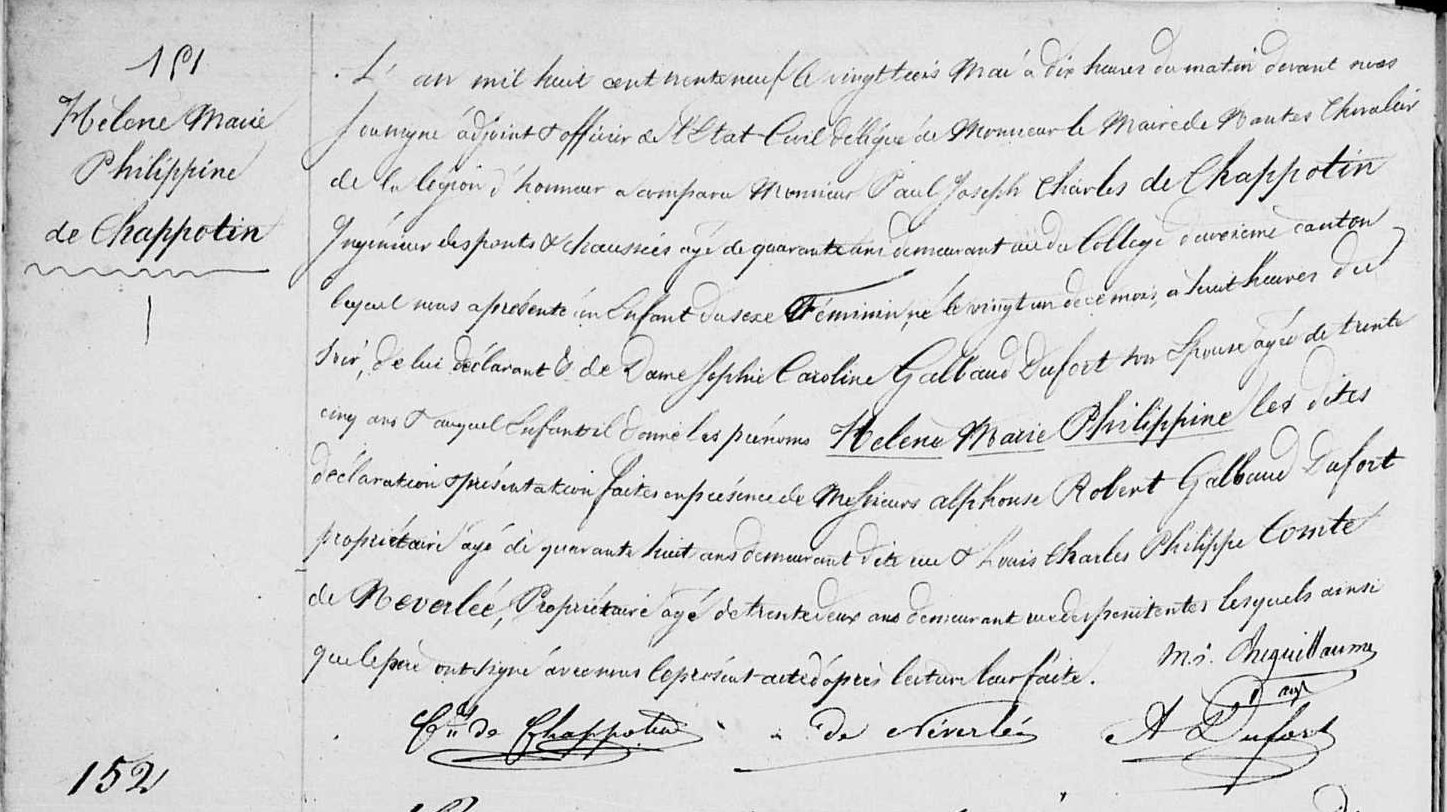 151
Hélene Marie
Philippine
de Chappotin
L'an mil huit cent trente neuf le vingt trois Mai à dix heures du matin devant nous
Soussigné adjoint & officier de l'Etat Civil délégué de Monsieur le Maire de Nantes Chevalier
de la légion d'honneur a comparu Monsieur Paul Joseph Charles de Chappotin
Ingénieur des ponts & chaussées agé de quarante ans demeurant rue du Collège deuxième canton
lequel nous a présenté un Enfant du sexe Féminin, né le vingt un de ce mois, à huit heures du
soir, de lui déclarant & de Dame Sophie Caroline Galbaud Dufort son Epouse agée de trente
cinq ans & auquel Enfant il donne les prénoms Hélene Marie Philippine les dites
déclaration & présentation faites en présence de Messieurs alphonse Robert Galbaud Dufort
propriétaire agé de quarante huit ans demeurant dite rue & Louis Charles Philippe Comte
de Neverlée, Propriétaire agé de trente deux ans demeurant rue des penitentes lesquels ainsi
que le père ont signé avec nous le présent acte d'après lecture leur faite.
Ch de Chappotin
de Néverlée
A Dufort
152